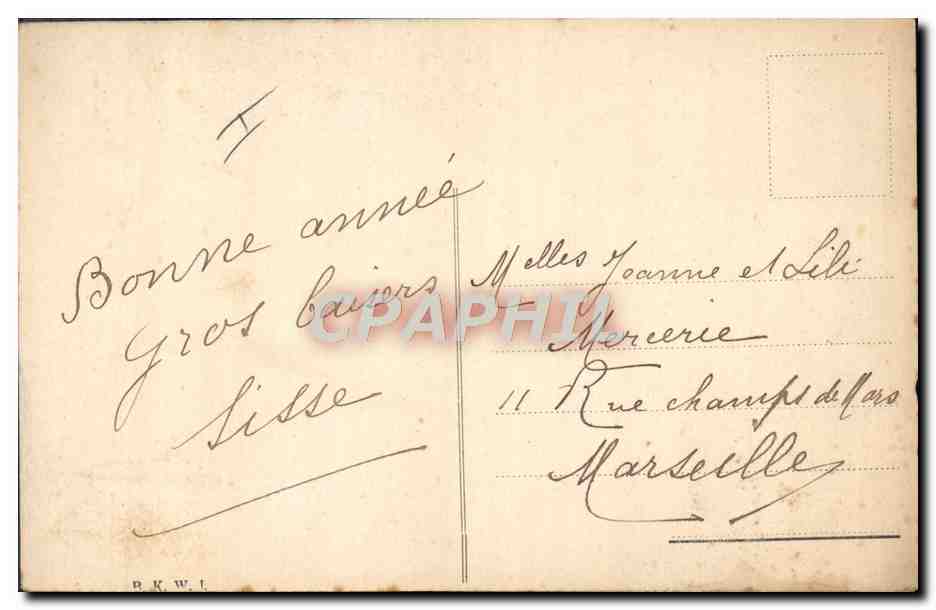 I
Bonne année
gros baisers
Sisse
Melles Jeanne et Lili
Mercerie
11 Rue champs de Mars
Marseille
CPAPHIL
R. K. W. I.